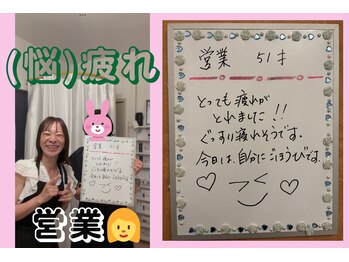 (悩)疲れ
営業
営業 51才
とっても疲れが
とれました!!
ぐっすり寝れそうです。
今日は、自分にごほうびです。